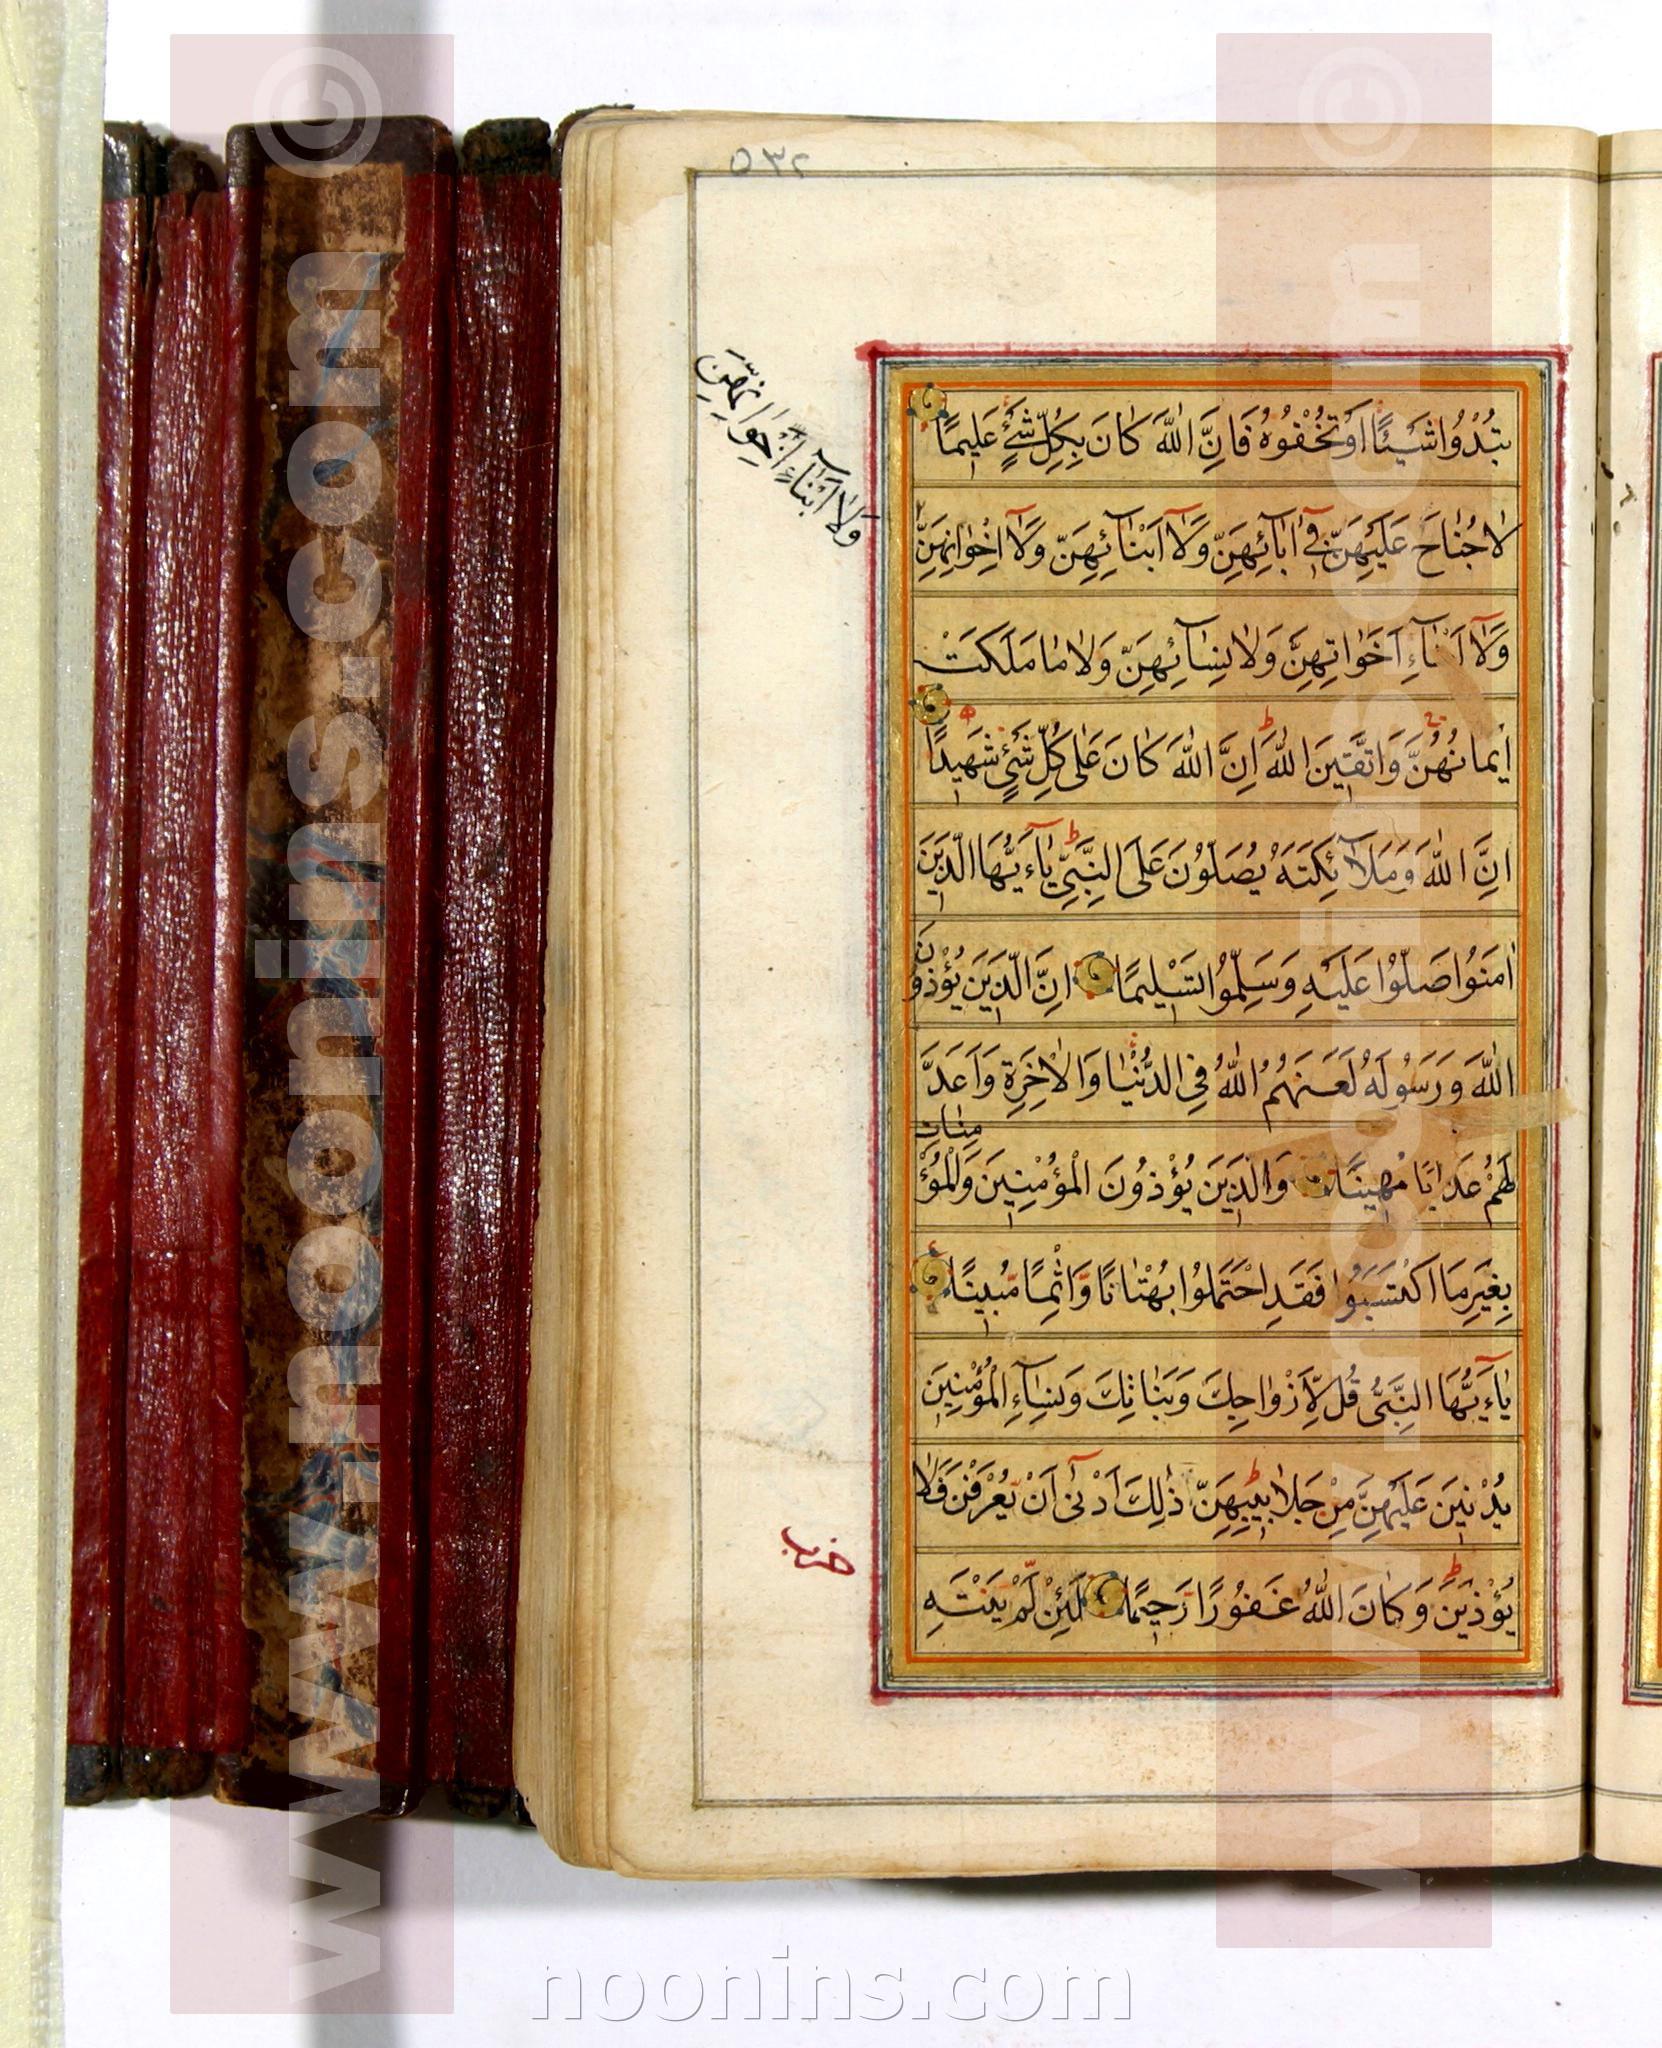 ۵۳۲
تُبْدُوا شَيْئًا اَوْ تُخْفُوهُ فَاِنَّ اللّٰهَ كَانَ بِكُلِّ شَیْءٍ عَلِيمًا
لَا جُنَاحَ عَلَيْهِنَّ فِیٓ اٰبَآئِهِنَّ وَلَآ اَبْنَآئِهِنَّ وَلَآ اِخْوَانِهِنَّ
وَلَآ اَبْنَآءِ اِخْوَانِهِنَّ
وَلَآ اَبْنَآءِ اَخَوَاتِهِنَّ وَلَا نِسَآئِهِنَّ وَلَا مَا مَلَكَتْ
اَيْمَانُهُنَّ وَاتَّقِينَ اللّٰهَ اِنَّ اللّٰهَ كَانَ عَلٰى كُلِّ شَیْءٍ شَهِيدًا
اِنَّ اللّٰهَ وَمَلَآئِكَتَهُ يُصَلُّونَ عَلَى النَّبِیِّ يَآءَيُّهَا الَّذِينَ
اٰمَنُوا صَلُّوا عَلَيْهِ وَسَلِّمُوا تَسْلِيمًا اِنَّ الَّذِينَ يُؤْذُونَ
اللّٰهَ وَرَسُولَهُ لَعَنَهُمُ اللّٰهُ فِی الدُّنْيَا وَالْاٰخِرَةِ وَاَعَدَّ
لَهُمْ عَذَابًا مُهِينًا وَالَّذِينَ يُؤْذُونَ الْمُؤْمِنِينَ وَالْمُؤْمِنَاتِ
بِغَيْرِ مَا اكْتَسَبُوا فَقَدِ احْتَمَلُوا بُهْتَانًا وَّاِثْمًا مُّبِينًا
يَآءَيُّهَا النَّبِیُّ قُلْ لِّاَزْوَاجِكَ وَبَنَاتِكَ وَنِسَآءِ الْمُؤْمِنِينَ
يُدْنِينَ عَلَيْهِنَّ مِنْ جَلَابِيبِهِنَّ ذٰلِكَ اَدْنٰىٓ اَنْ يُّعْرَفْنَ فَلَا
حزب
يُؤْذَيْنَ وَكَانَ اللّٰهُ غَفُورًا رَحِيمًا لَئِنْ لَّمْ يَنْتَهِ
www.noonins.com ©
www.noonins.com ©
noonins.com